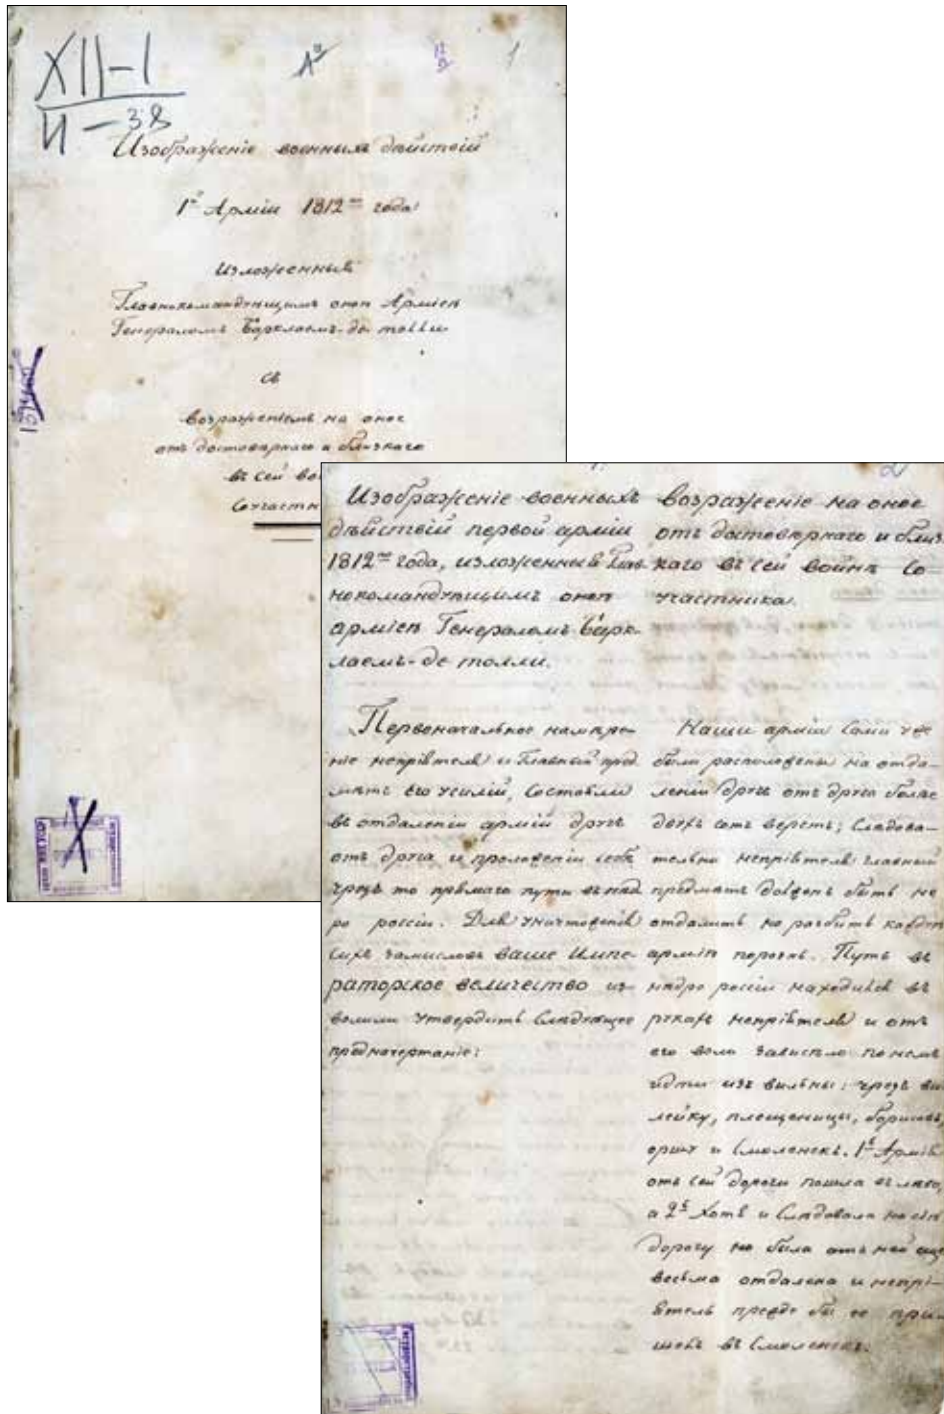 XII-I
И-38
1
Изображеніе военныхъ дѣйствій
1й Арміи 1812го года:
Изложенныя
Главнокомандующимъ оною Арміею
Генераломъ Барклаемъ-де толли
съ
возраженіемъ на оное
отъ достовѣрнаго и близкаго
въ сей
2
Изображеніе военныхъ
дѣйствій первой арміи
1812го года, изложенныя Глав-
нокомандующимъ оною
арміею Генераломъ Барк-
лаемъ-де толли.
Первоначальное намѣре-
ніе непріятеля и Главный пред
мѣтъ его усилій, Состояли
въ отдаленіи армій другъ
отъ друга и проложеніи себѣ
чрезъ то прямаго пути въ нѣд
ро россіи. Для уничтоженія
сихъ замысловъ Ваше Импе-
раторское величество из-
волили утвердить Слѣдующее
предначертаніе:
возраженіе на оное
отъ достовѣрнаго и близ
каго въ сей войнѣ Со-
участника.
Наши арміи Сами уже
были расположены на отда-
леніи другъ отъ друга болѣе
двухъ сотъ верстъ; Слѣдова-
тельно непріятеля главный
предмѣтъ долженъ быть не
отдалить но разбить каждую
армію порознь. Путь въ
нѣдро россіи находился въ
рукахъ непріятеля и отъ
его воли зависѣло по немъ
идти изъ вильны: чрезъ ви
лейку, плещеницы, борисовъ,
оршу и Смоленскъ. 1я Армія
отъ сей дороги пошла влѣво,
а 2я Хотя и Слѣдовала на сію
дорогу но была отъ ней еще
весьма отдалена и непрі-
ятель прежде бы ее при
шелъ въ Смоленскъ.